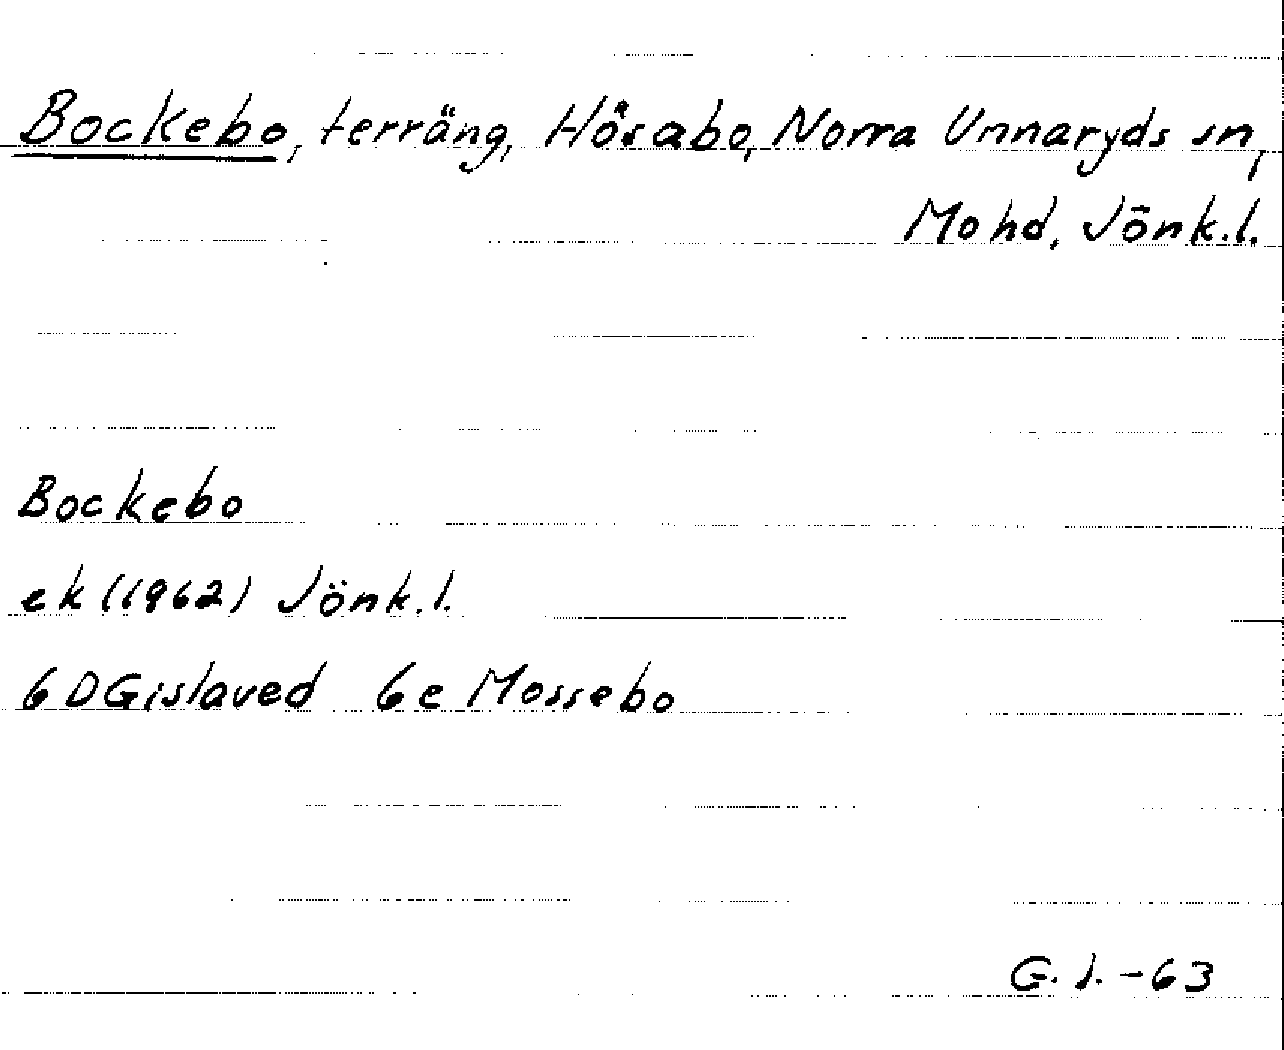 Bockebo, terräng, Hösabo, Norra Unnaryds sn,
Mohd, Jönk.l.
Bockebo
ek (1962) Jönk.l.
6D Gislaved 6e Mossebo
G. J. -63